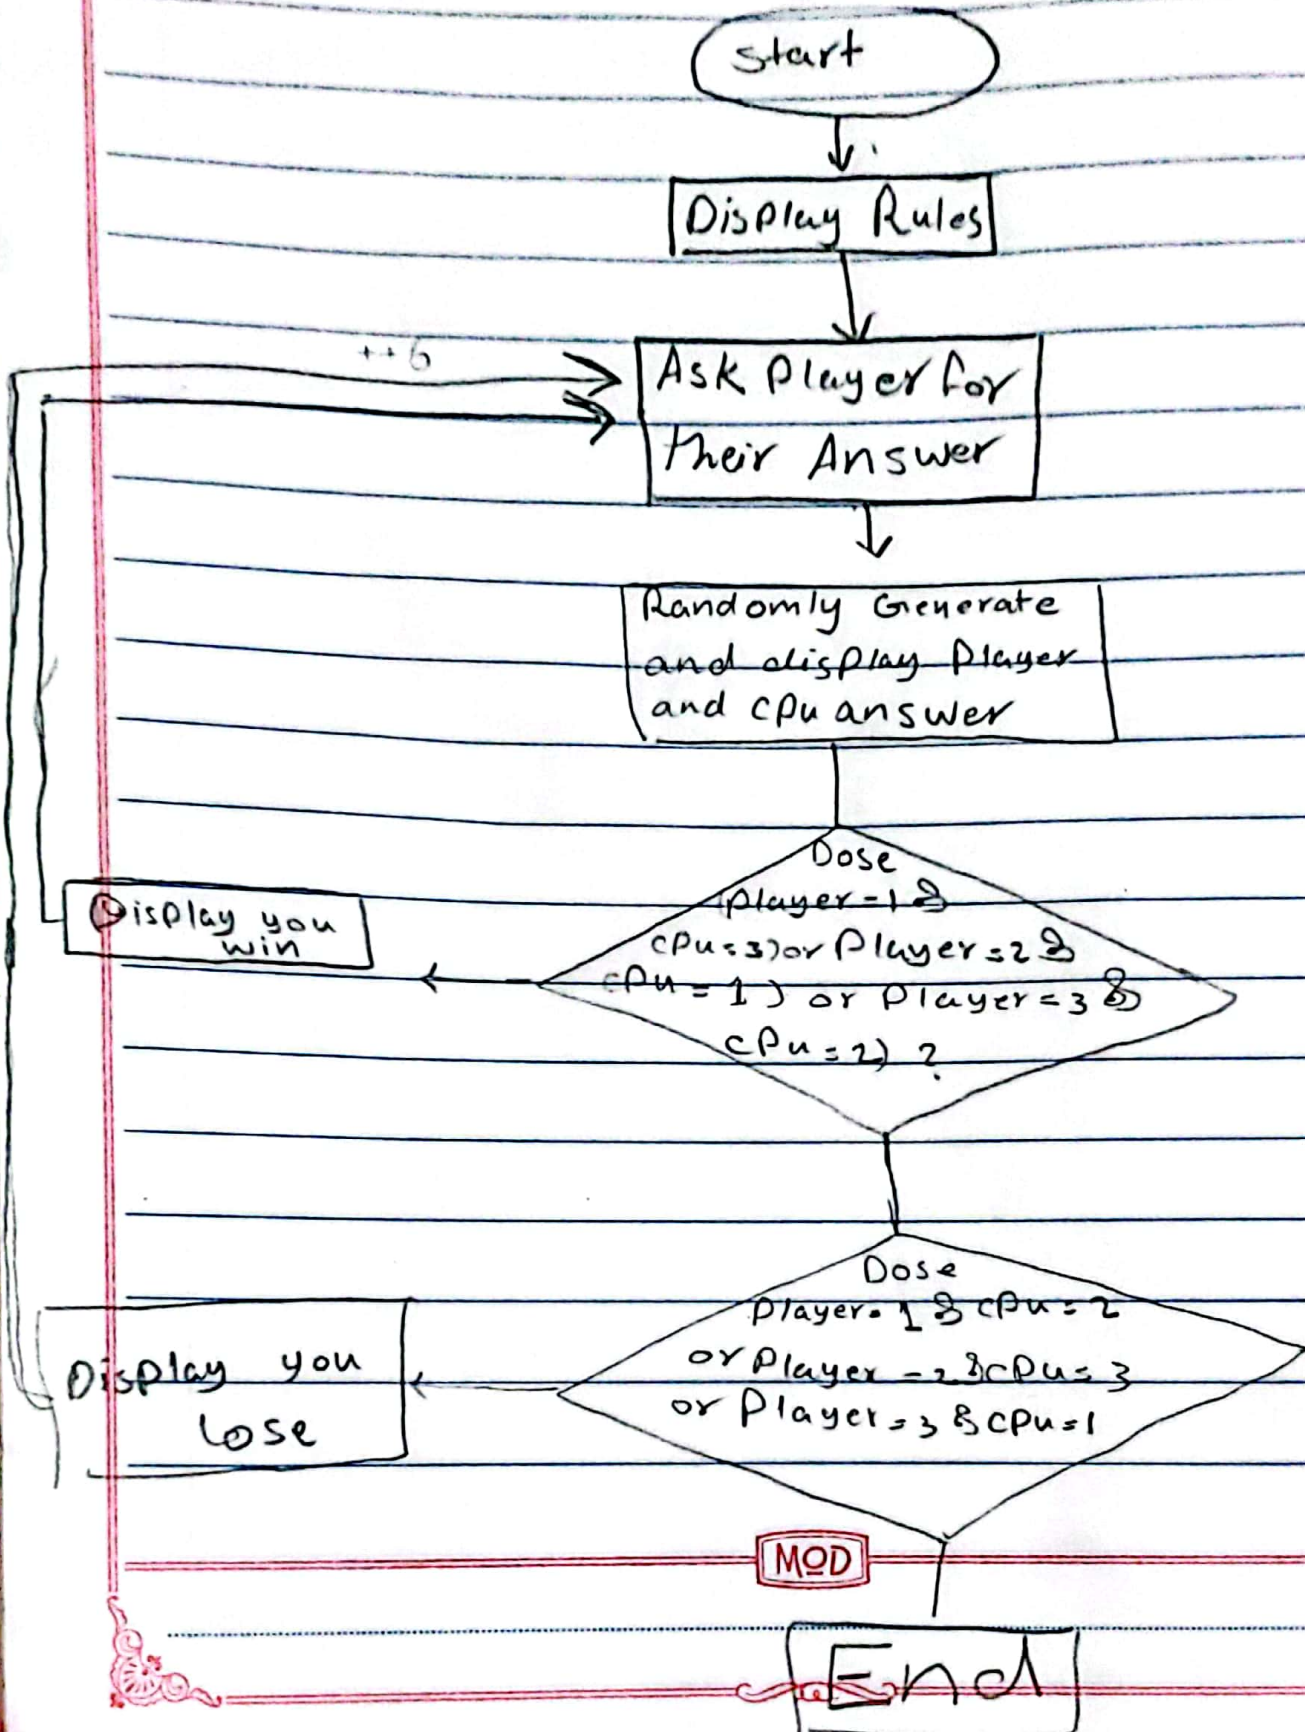 Start
Display Rules
Ask Player for
their Answer
Randomly Generate
and display Player
and cpu answer
Dose
(player=1 &
cpu=3) or Player=2 &
cpu=1) or Player=3 &
cpu=2) ?
Display you
win
Dose
Player=1 & cpu=2
or Player=2 & cpu=3
or Player=3 & cpu=1
Display you
lose
MOD
End